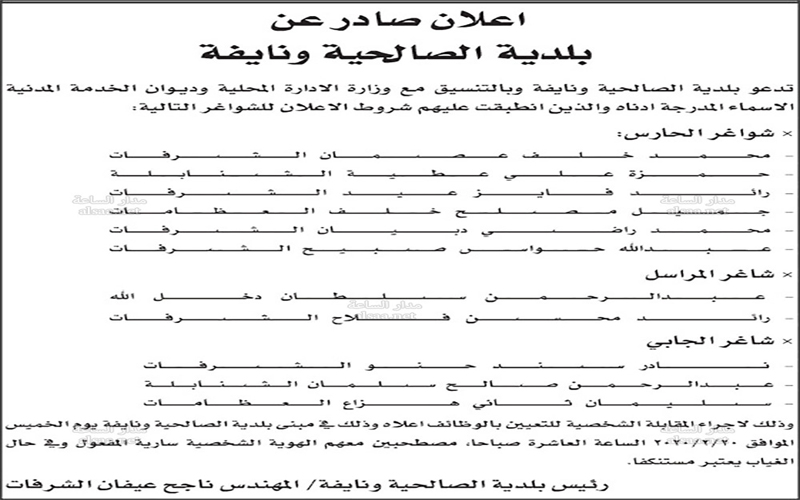 اعلان صادر عن
بلدية الصالحية ونايفة
تدعو بلدية الصالحية ونايفة وبالتنسيق مع وزارة الادارة المحلية وديوان الخدمة المدنية
الاسماء المدرجة ادناه والذين انطبقت عليهم شروط الاعلان للشواغر التالية:
× شواغر الحارس:
- محمد خلف عصمان الشرفات
- حمزة علي عطية الشنابلة
- رائد فايز عيد الشرفات
- جميل مصلح خلف العظامات
- محمد راضي ذبيان الشرفات
- عبدالله حواس صبيح الشرفات
× شاغر المراسل
- عبدالرحمن سلطان دخل الله
- رائد محسن فلاح الشرفات
× شاغر الجابي
- نادر سند حنو الشرفات
- عبدالرحمن صالح سلمان الشنابلة
- سليمان ثاني هزاع العظامات
وذلك لاجراء المقابلة الشخصية للتعيين بالوظائف اعلاه وذلك في مبنى بلدية الصالحية ونايفة يوم الخميس
الموافق ٢٠٢٠/٢/٢٠ الساعة العاشرة صباحا، مصطحبين معهم الهوية الشخصية سارية المفعول وفي حال
الغياب يعتبر مستنكفا.
رئيس بلدية الصالحية ونايفة/ المهندس ناجح عيفان الشرفات
مدار الساعة
alsaa.net